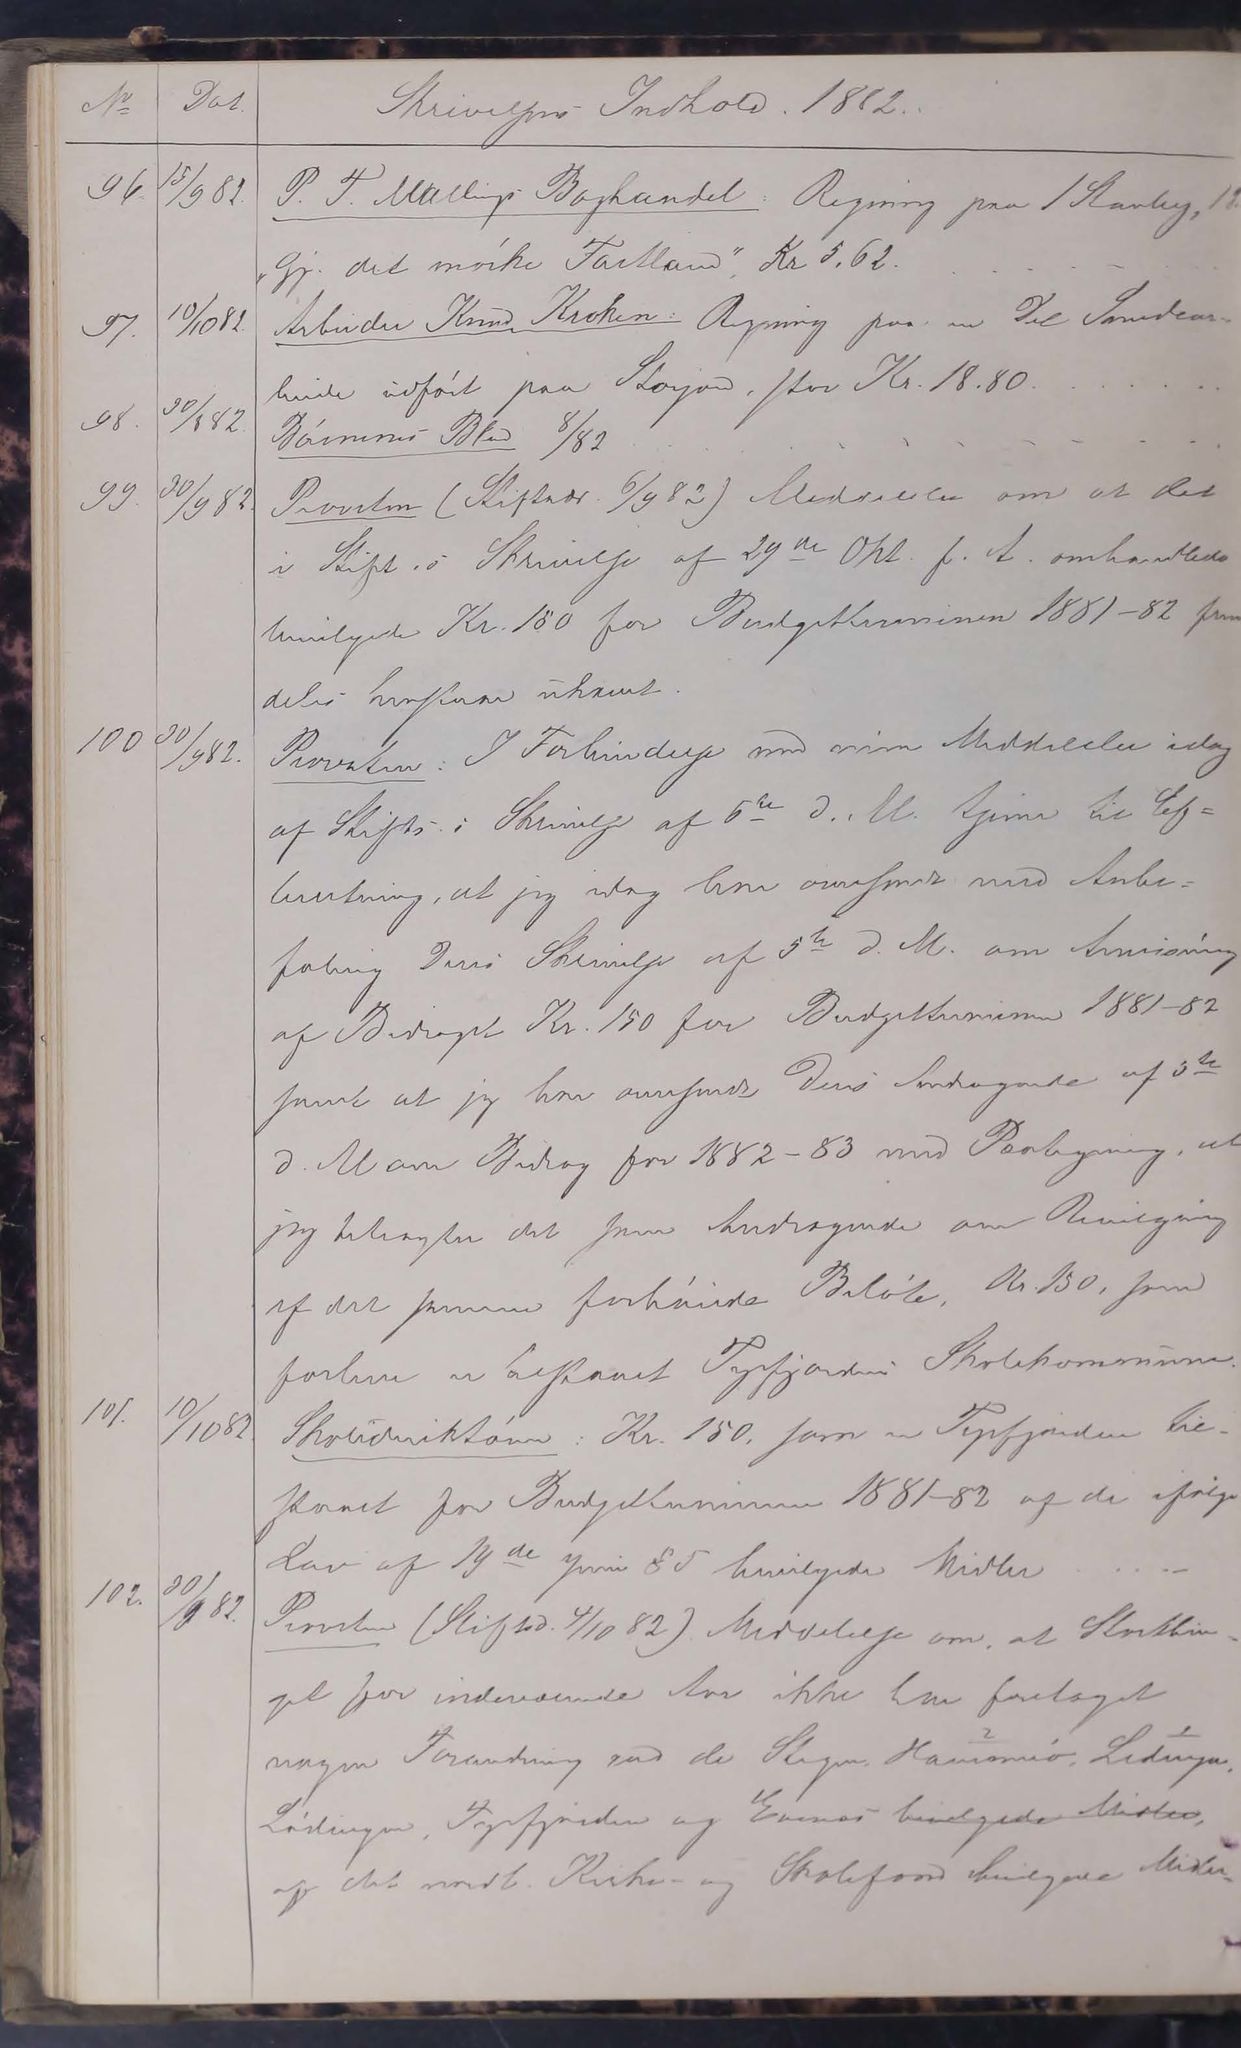 No Dat. Skrivelsens Indhold. 1882.
96. 15/9 82. P. T. Mallings Boghandel: Regning paa 1 Stanley,
"Gj. det mørke Fastland", Kr 5,62.
97. 10/10 82. Arbeider Knud Kroken: Regning paa en Del Smedear-
beide udført paa Storjord, stor Kr. 18.80.
98. 30/8 82. Børnenes Blad 8/82
99. 30/9 82. Provsten (Stiftsdir. 6/9 82) Meddelelse om at det
i Stift.s Skrivelse af 29de Okt. f. A. omhandlede
bevilgede Kr. 150 for Budgetterminen 1881-82 frem
deles henstaar uhævet.
100 30/9 82. Provsten: I Forbindelse med min Meddelelse idag
af Stifts. s Skrivelse af 6te d. M. tjener til Ef=
terretning, at jeg idag har oversendt med Anbe=
faling Deres Skrivelse af 5te d. M. om Anvisning
af Bidraget Kr. 150 for Budgetterminen 1881-82
samt at jeg har oversendt Deres Andragende af 5te
d. M om Bidrag for 1882-83 med Paategning, at
jeg betragter det som Andragende om Bevilgning
af det samme forhøiede Beløb, Kr. 150, som
forhen er tilstaaet Tysfjordens Skolekommune.
101. 10/10 82. Skoledirektøren: Kr. 150, som er Tysfjorden til-
staaet for Budgetterminen 1881-82 af de ifølge
Lov af 19de Juni § 5 bevilgede Midler
102. 30/9 82. Provsten (Stiftsd. 4/10 82). Meddelelse om, at Storthin-
get for indeværende Aar ikke har foretaget
nogen Forandring ved de Steigen, Hammerø, Ledingen,
2 1
Lødingen, Tysfjorden og Evenes bevilgede Midler,
af det nordl. Kirke- og Skolefond bevilgede Midler